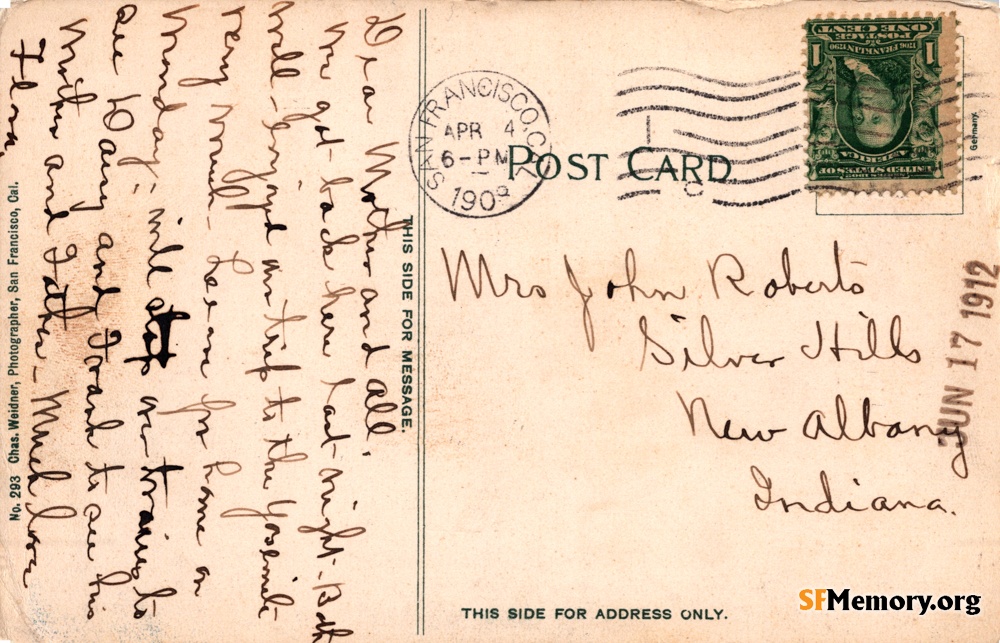 Dear Mother and all
We got back here last night - Both
well - enjoyed our trip to the Yosemite
very much - Leave for home on
Monday - will stop our train to
see Dany and Frank to see his
Mother and Father - Much love
Flora.
No. 293 Chas. Weidner, Photographer, San Francisco, Cal.
THIS SIDE FOR MESSAGE.
SAN FRANCISCO, CAL
APR 4
6-PM
1909
POST CARD
UNITED STATES OF
AMERICA
1706 FRANKLIN 1790
POSTAGE
ONE CENT
1 1
Germany.
Mrs John Roberts
Silver Hills
New Albany
Indiana.
JUN 17 1912
THIS SIDE FOR ADDRESS ONLY.
SFMemory.org